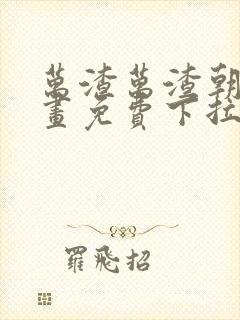 萬渣萬渣朝
畫免費下拉
羅飛招